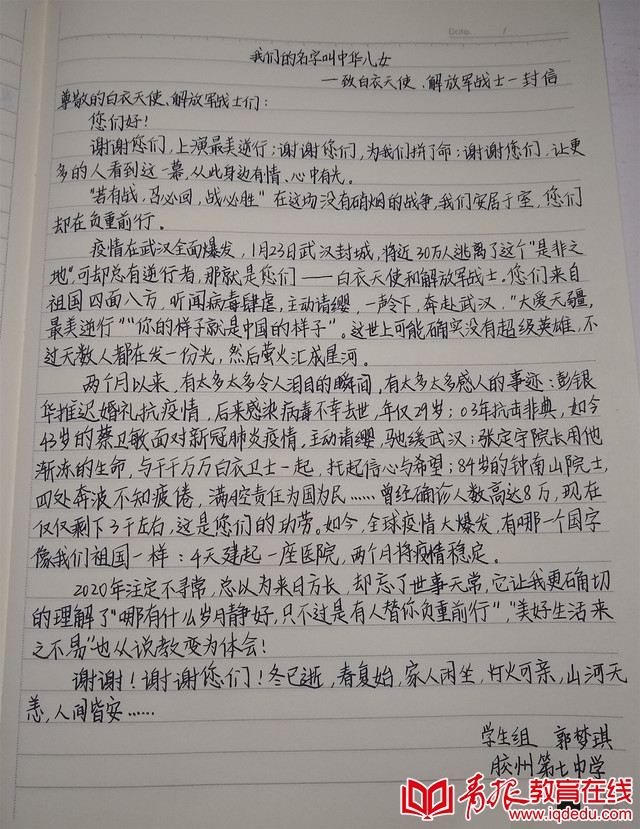 Date. /
我们的名字叫中华儿女
—致白衣天使、解放军战士一封信
尊敬的白衣天使、解放军战士们：
您们好！
谢谢您们，上演最美逆行；谢谢您们，为我们拼了命；谢谢您们，让更
多的人看到这一幕，从此身边有情、心中有光。
“若有战，召必回，战必胜”在这场没有硝烟的战争，我们安居于室，您们
却在负重前行。
疫情在武汉全面爆发，1月23日武汉封城，将近30万人逃离了这个“是非之
地”，可却总有逆行者，那就是您们——白衣天使和解放军战士。您们来自
祖国四面八方，听闻病毒肆虐，主动请缨，一声令下，奔赴武汉，“大爱无疆，
最美逆行”“你的样子就是中国的样子”。这世上可能确实没有超级英雄，不
过无数人都在发一份光，然后萤火汇成星河。
两个月以来，有太多太多令人泪目的瞬间，有太多太多感人的事迹：彭银
华推迟婚礼抗疫情，后来感染病毒不幸去世，年仅29岁；03年抗击非典，如今
43岁的蔡卫敏面对新冠肺炎疫情，主动请缨，驰援武汉；张定宇院长用他
渐冻的生命，与千千万万白衣卫士一起，托起信心与希望；84岁的钟南山院士，
四处奔波不知疲倦，满腔责任为国为民……曾经确诊人数高达8万，现在
仅仅剩下3千左右，这是您们的功劳。如今，全球疫情大爆发，有哪一个国字
像我们祖国一样：4天建起一座医院，两个月将疫情稳定。
2020年注定不寻常，总以为来日方长，却忘了世事无常，它让我更确切
的理解了“哪有什么岁月静好，只不过是有人替你负重前行”，“美好生活来
之不易”也从说教变为体会！
谢谢！谢谢您们！冬已逝，春复始，家人闲坐，灯火可亲，山河无
恙，人间皆安……
学生组 郭梦琪
胶州第七中学
青报教育在线
www.iqdedu.com